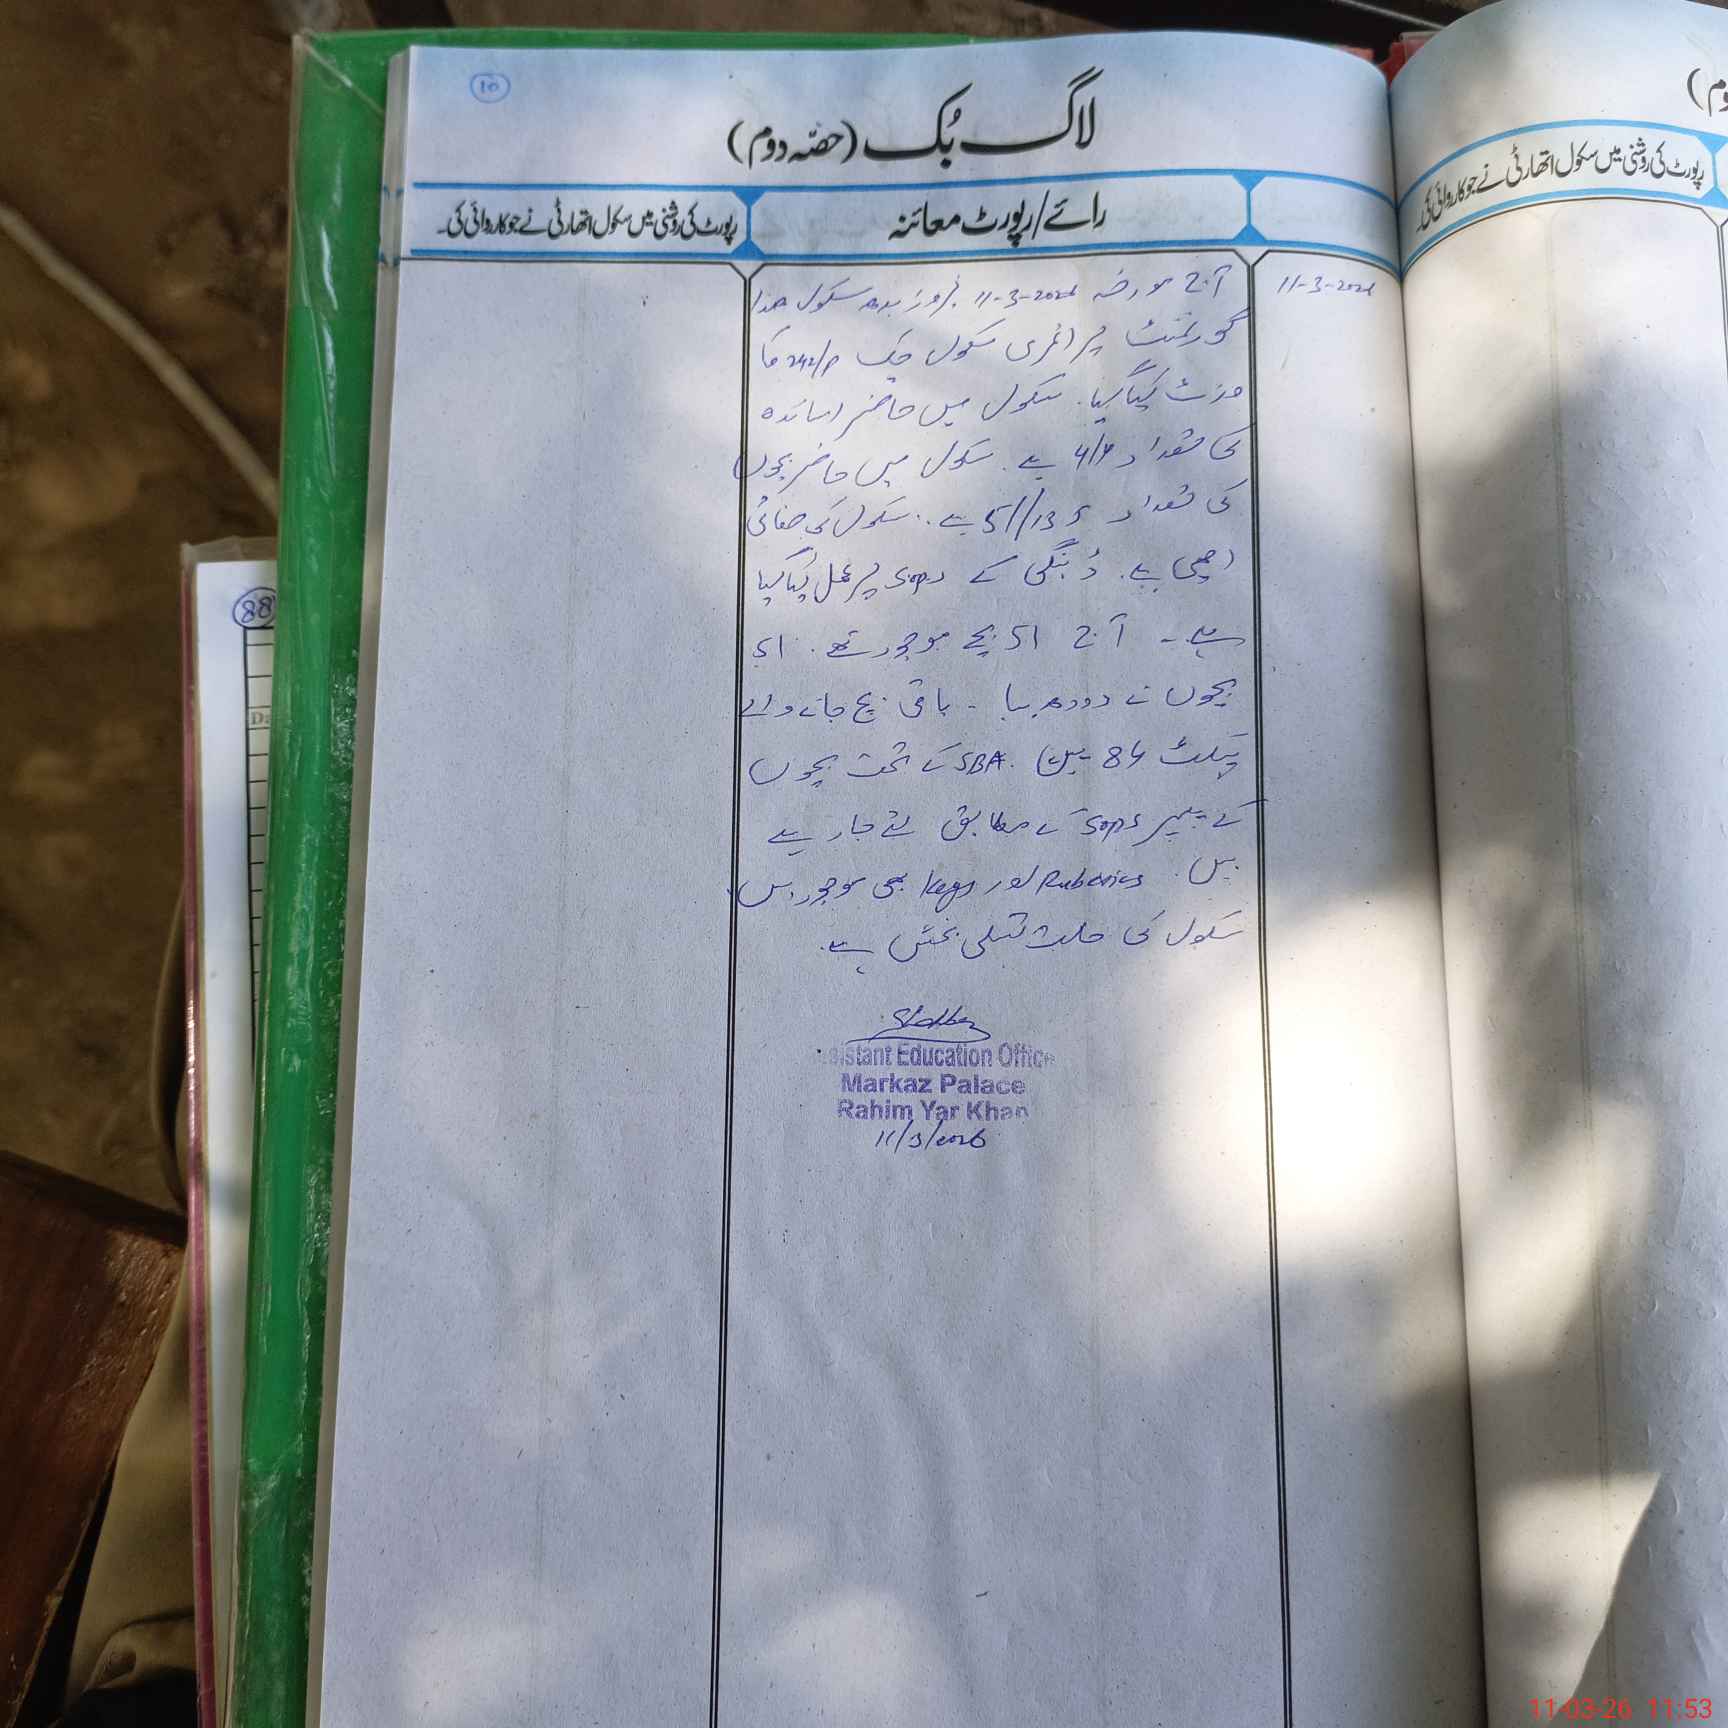 10
لاگ بُک (حصّہ دوم)
رائے/رپورٹ معائنہ
رپورٹ کی روشنی میں سکول اتھارٹی نے جو کارروائی کی۔
11-3-2026
آج مورخہ 11-3-2026 بروز بدھ سکول ھذا
گورنمنٹ پرائمری سکول چک 242/P کا
وزٹ کیا گیا۔ سکول میں حاضر اساتذہ
کی تعداد 4/4 ہے۔ سکول میں حاضر بچوں
کی تعداد 51/135 ہے۔ سکول کی صفائی
اچھی ہے۔ ڈینگی کے Sops پر عمل کیا گیا
ہے۔ آج 51 بچے موجود تھے۔ 51
بچوں نے دودھ پیا۔ باقی بچ جانے والے
پیکٹ 84 ہیں۔ SBA کے تحت بچوں
کے پیپر Sops کے مطابق لئے جا رہے
ہیں۔ Rubrics اور Keys بھی موجود ہیں
سکول کی حالت تسلی بخش ہے۔
Assistant Education Officer
Markaz Palace
Rahim Yar Khan
11/3/2026
88
رپورٹ کی روشنی میں سکول اتھارٹی نے جو کارروائی کی۔
11-03-26 11:53